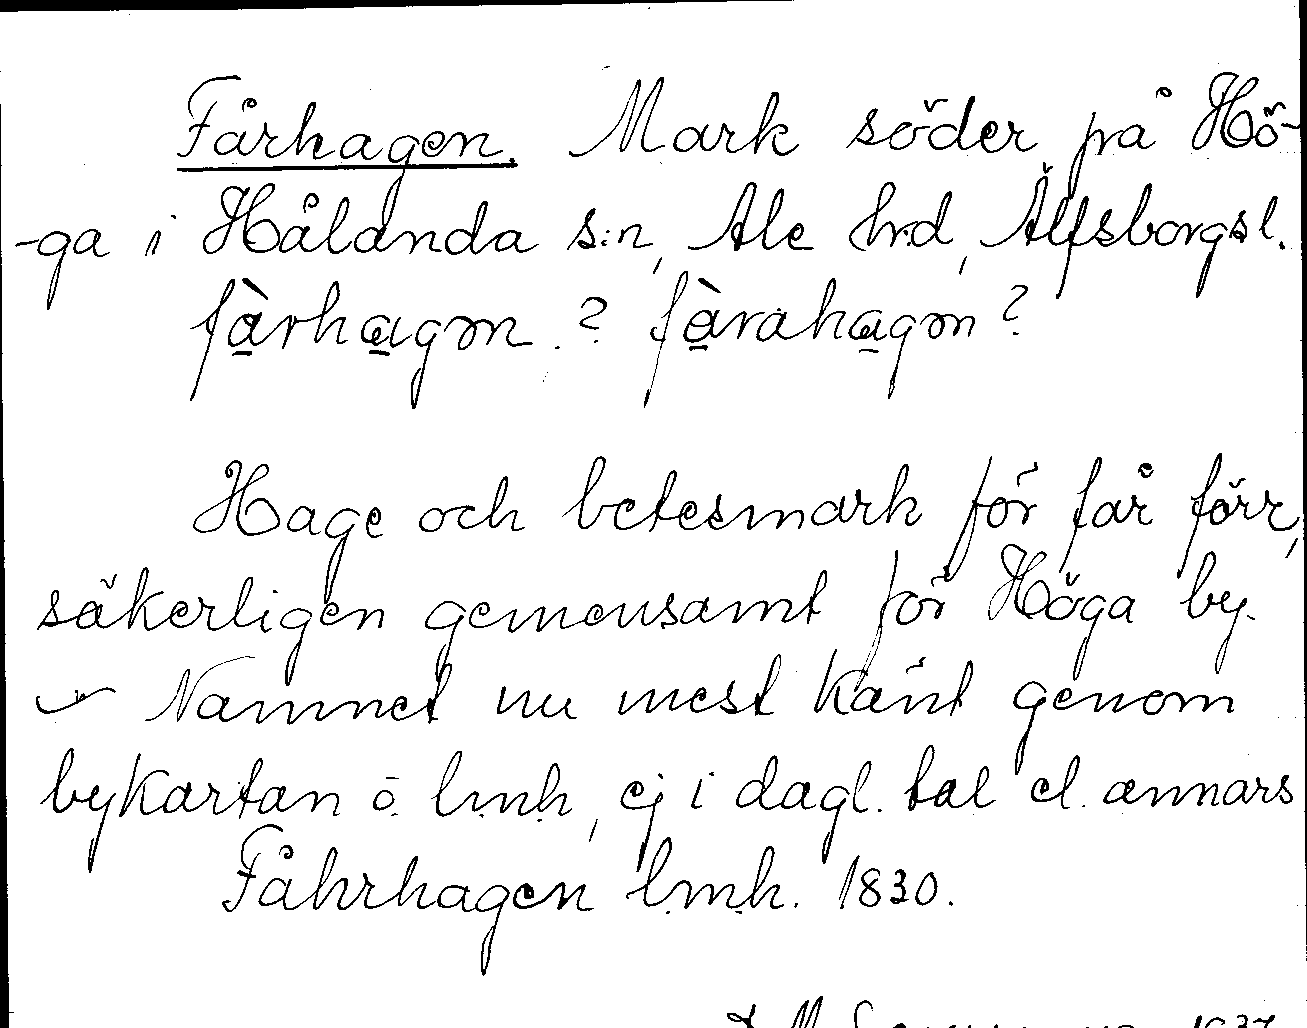 Fårhagen. Mark söder på Hö-
-ga i Hålanda s:n, Ale hrd, Älfsborgsl.
fàrhagən. ? fàrahagən ?
Hage och betesmark för får förr,
säkerligen gemensamt för Höga by.
Namnet nu mest känt genom
bykartan o. l.m.h., ej i dagl. tal el. annars
Fåhrhagen l.m.h. 1830.